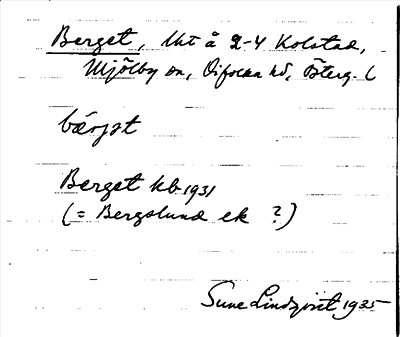 Berget, Uht å 2-4 Kolstad,
Mjölby sn, Vifolka hd, Österg. (
bärjət
Berget kb 1931
(= Bergslund ek ?)
Sune Lindqvist 1935